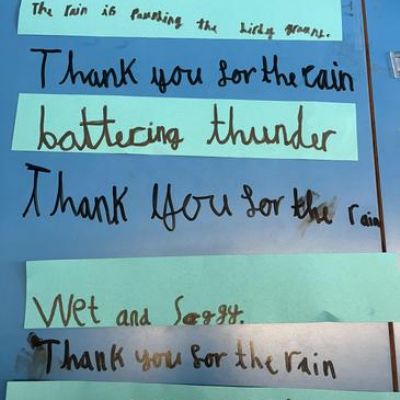 The rain is
the
Thank you for the rain
battering thunder
Thank you for the rain
Wet and Soggy.
Thank you for the rain